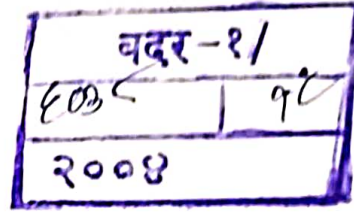 वदर-१/
६०३८ | १८
२००४